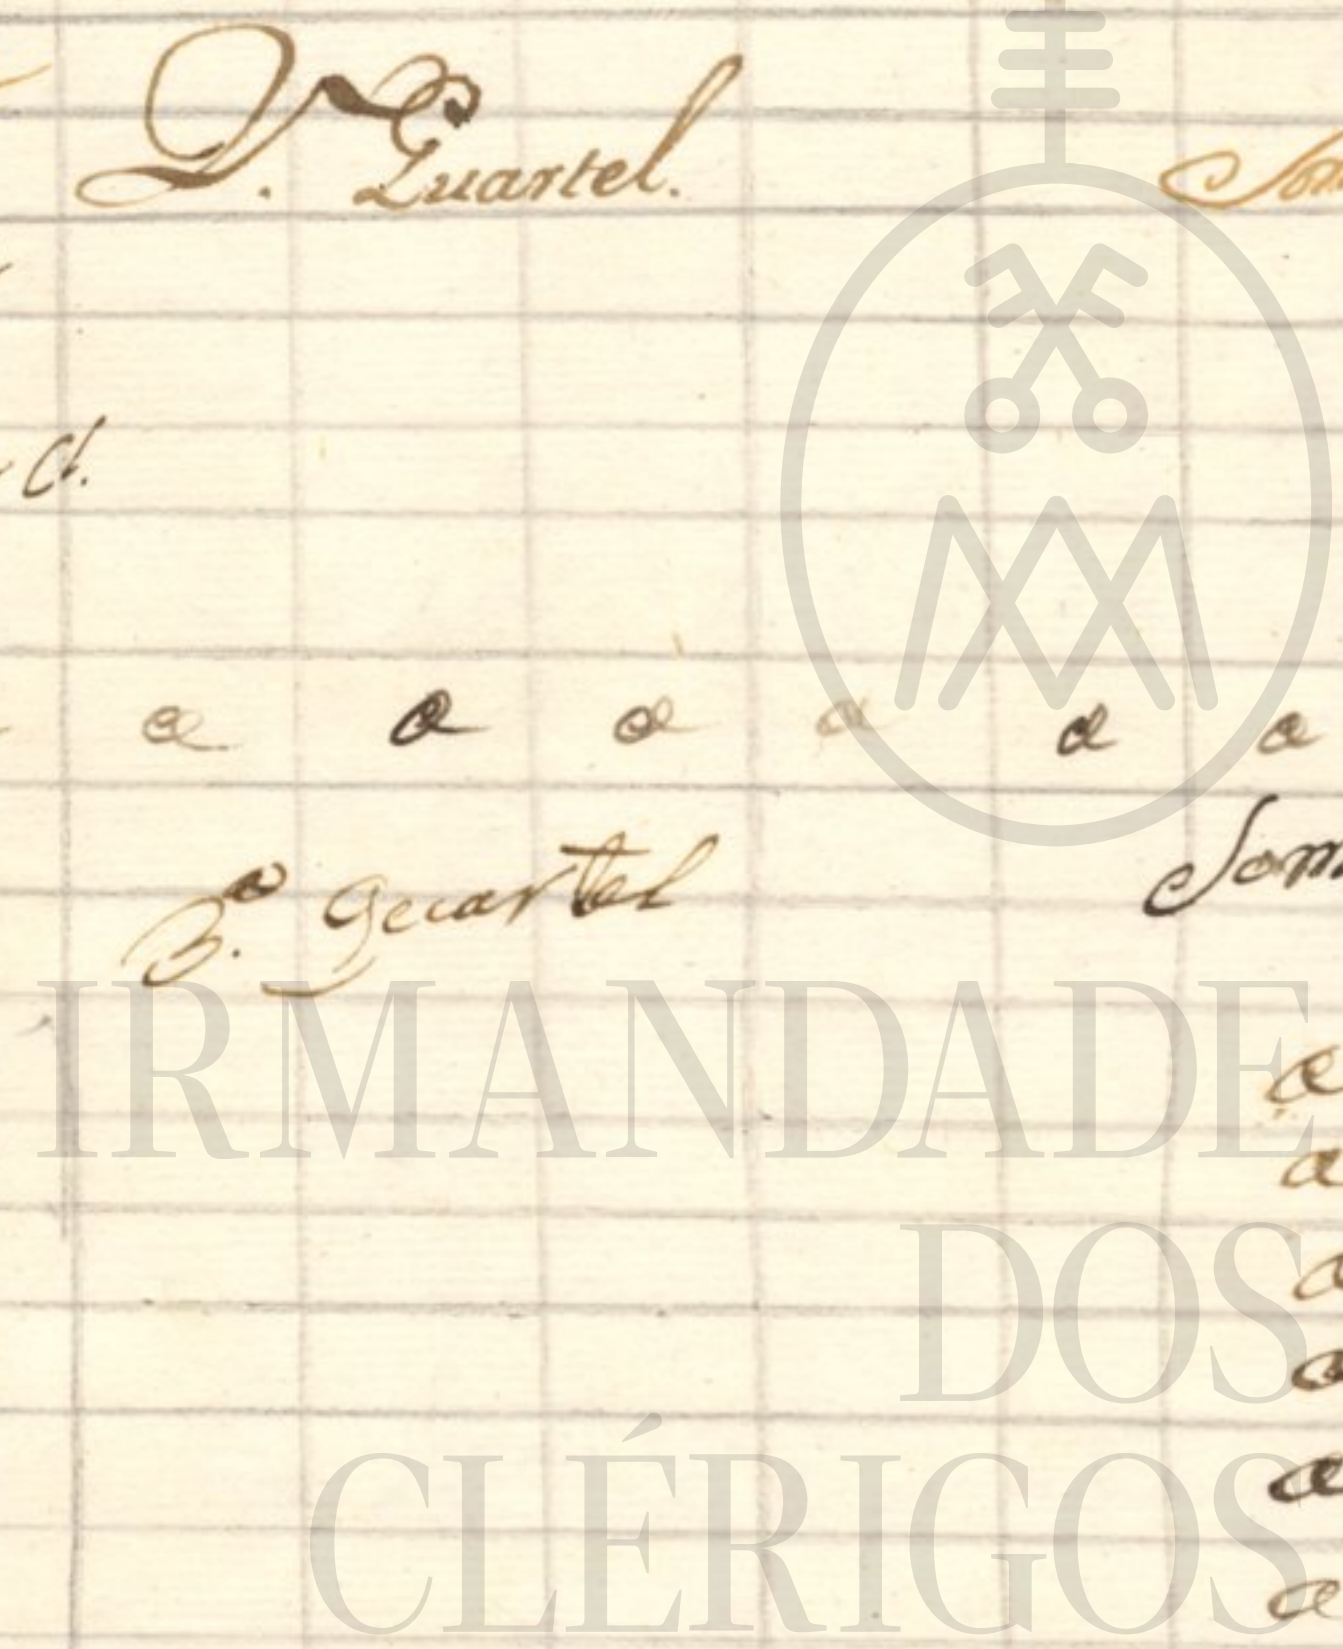 D. Quartel.
d.
a a a a a a
3.º Quartel
Som
a
a
a
a
a
a
IRMANDADE
DOS
CLÉRIGOS